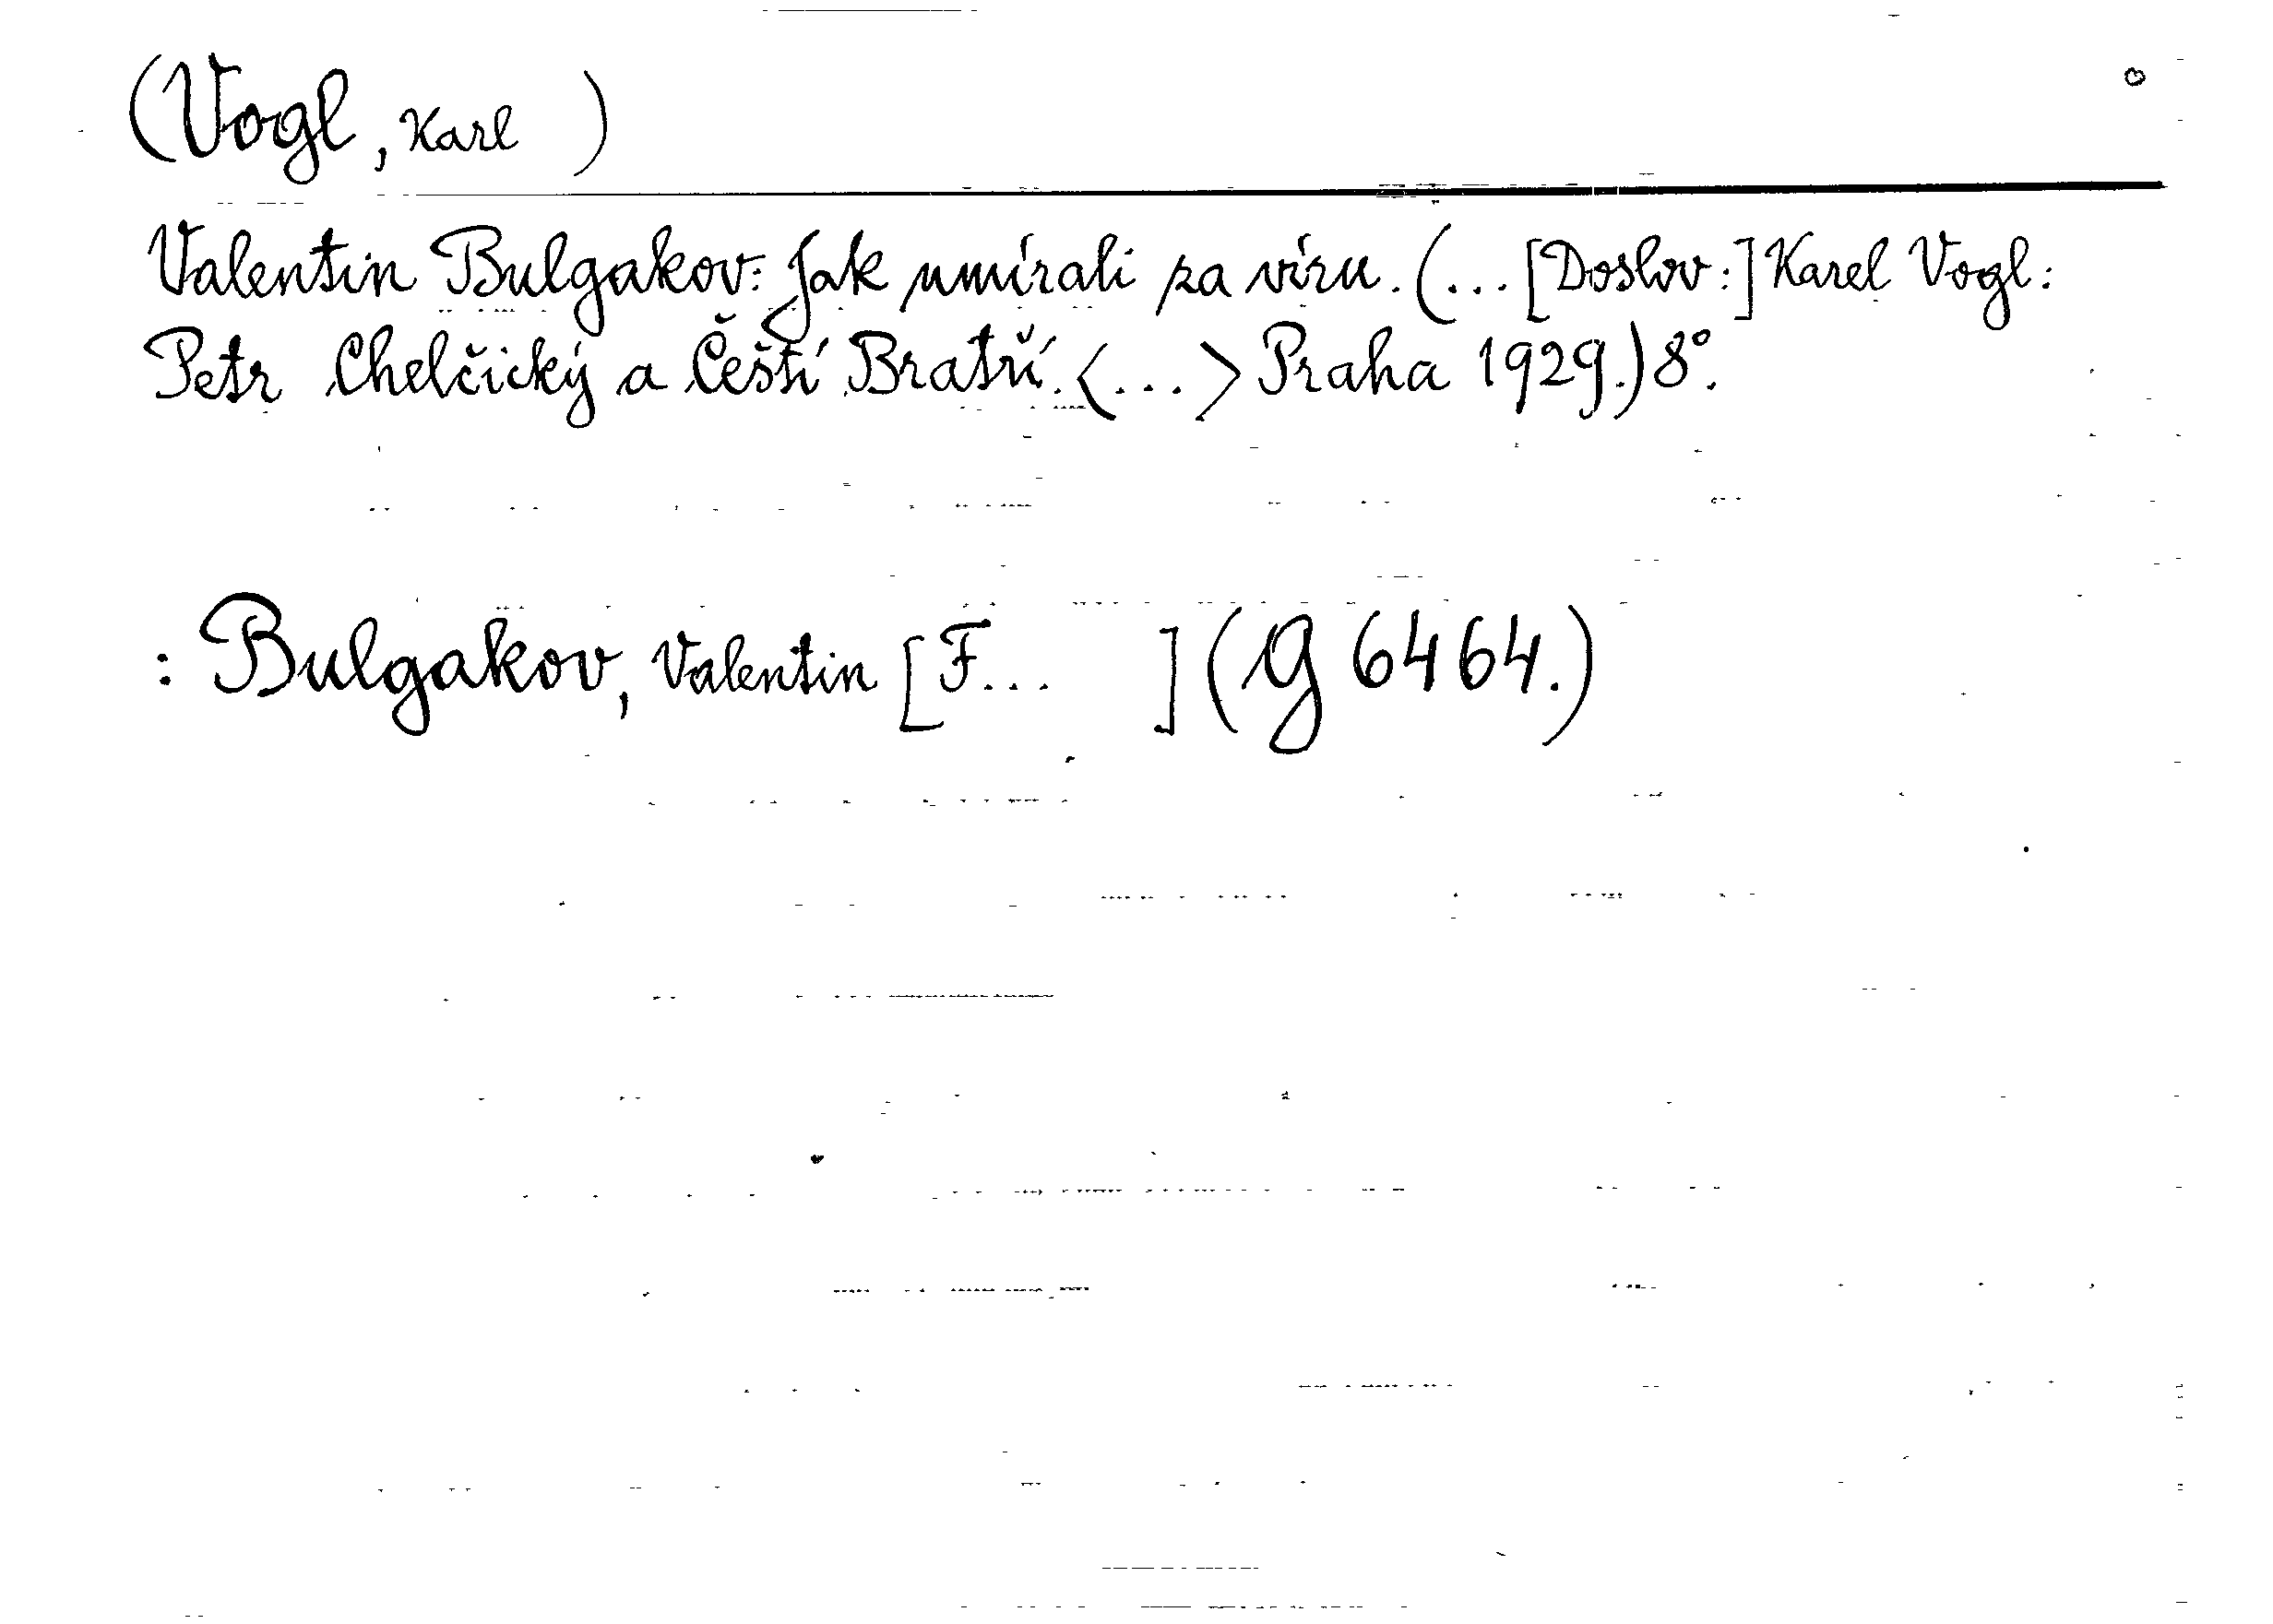 (Vogl, Karl )
Valentin Bulgakov: Jak umírali za víru. (... [Doslov:] Karel Vogl:
Petr Chelčický a Čeští Bratří. <...> Praha 1929.) 8°.
: Bulgakov, Valentin [F... ] (G 6464.)